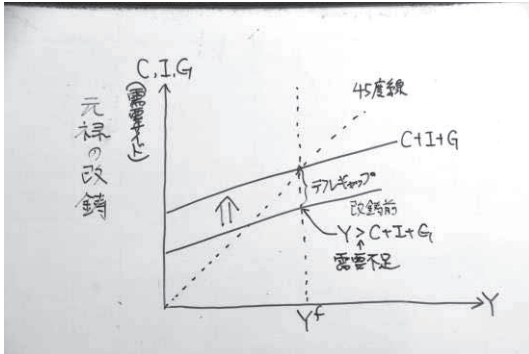 元禄の改鋳
C,I,G
(需要サイド)
45度線
C+I+G
デフレギャップ
改鋳前
Y>C+I+G
需要不足
Y
Yf